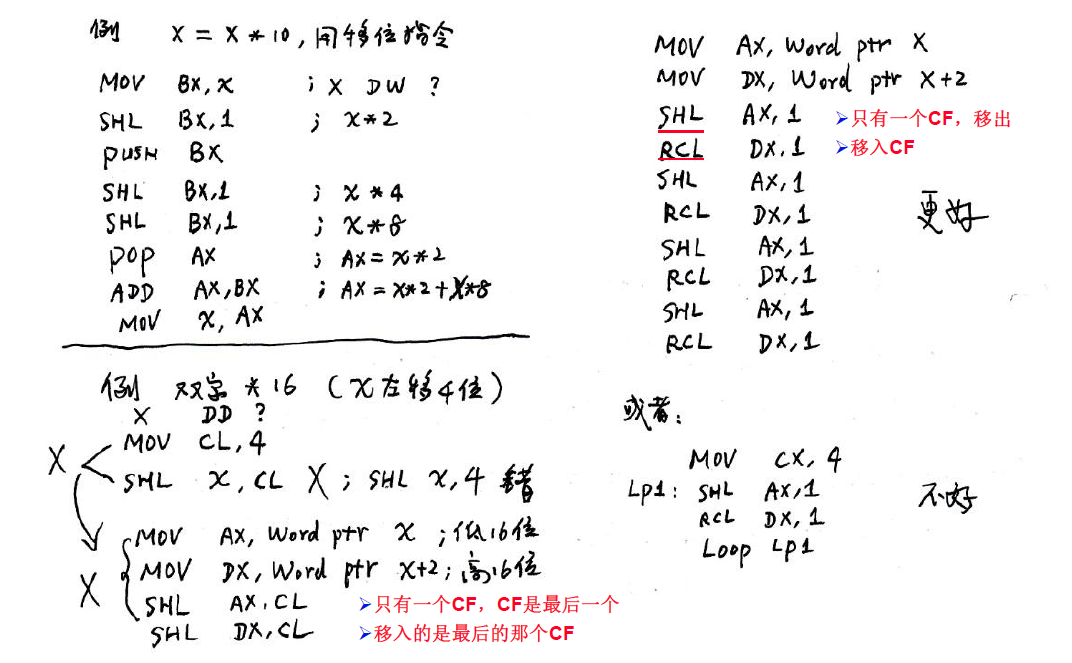 例 X = X * 10, 用移位指令
MOV BX, X ; X DW ?
SHL BX,1 ; X*2
PUSH BX
SHL BX,1 ; X *4
SHL BX,1 ; X*8
POP AX ; AX = X*2
ADD AX,BX ; AX = X*2+X*8
MOV X, AX
例 双字 * 16 (X左移4位)
X DD ?
X MOV CL,4
SHL X, CL X ; SHL X,4 错
MOV AX, Word ptr X ;低16位
X MOV DX, Word ptr X+2; 高16位
SHL AX, CL ➢只有一个CF，CF是最后一个
SHL DX, CL ➢移入的是最后的那个CF
MOV AX, Word ptr X
MOV DX, Word ptr X+2
SHL AX, 1 ➢只有一个CF，移出
RCL DX, 1 ➢移入CF
SHL AX, 1
RCL DX, 1 更好
SHL AX, 1
RCL DX, 1
SHL AX, 1
RCL DX, 1
或者:
MOV CX, 4
Lp1: SHL AX,1 不好
RCL DX, 1
Loop Lp1